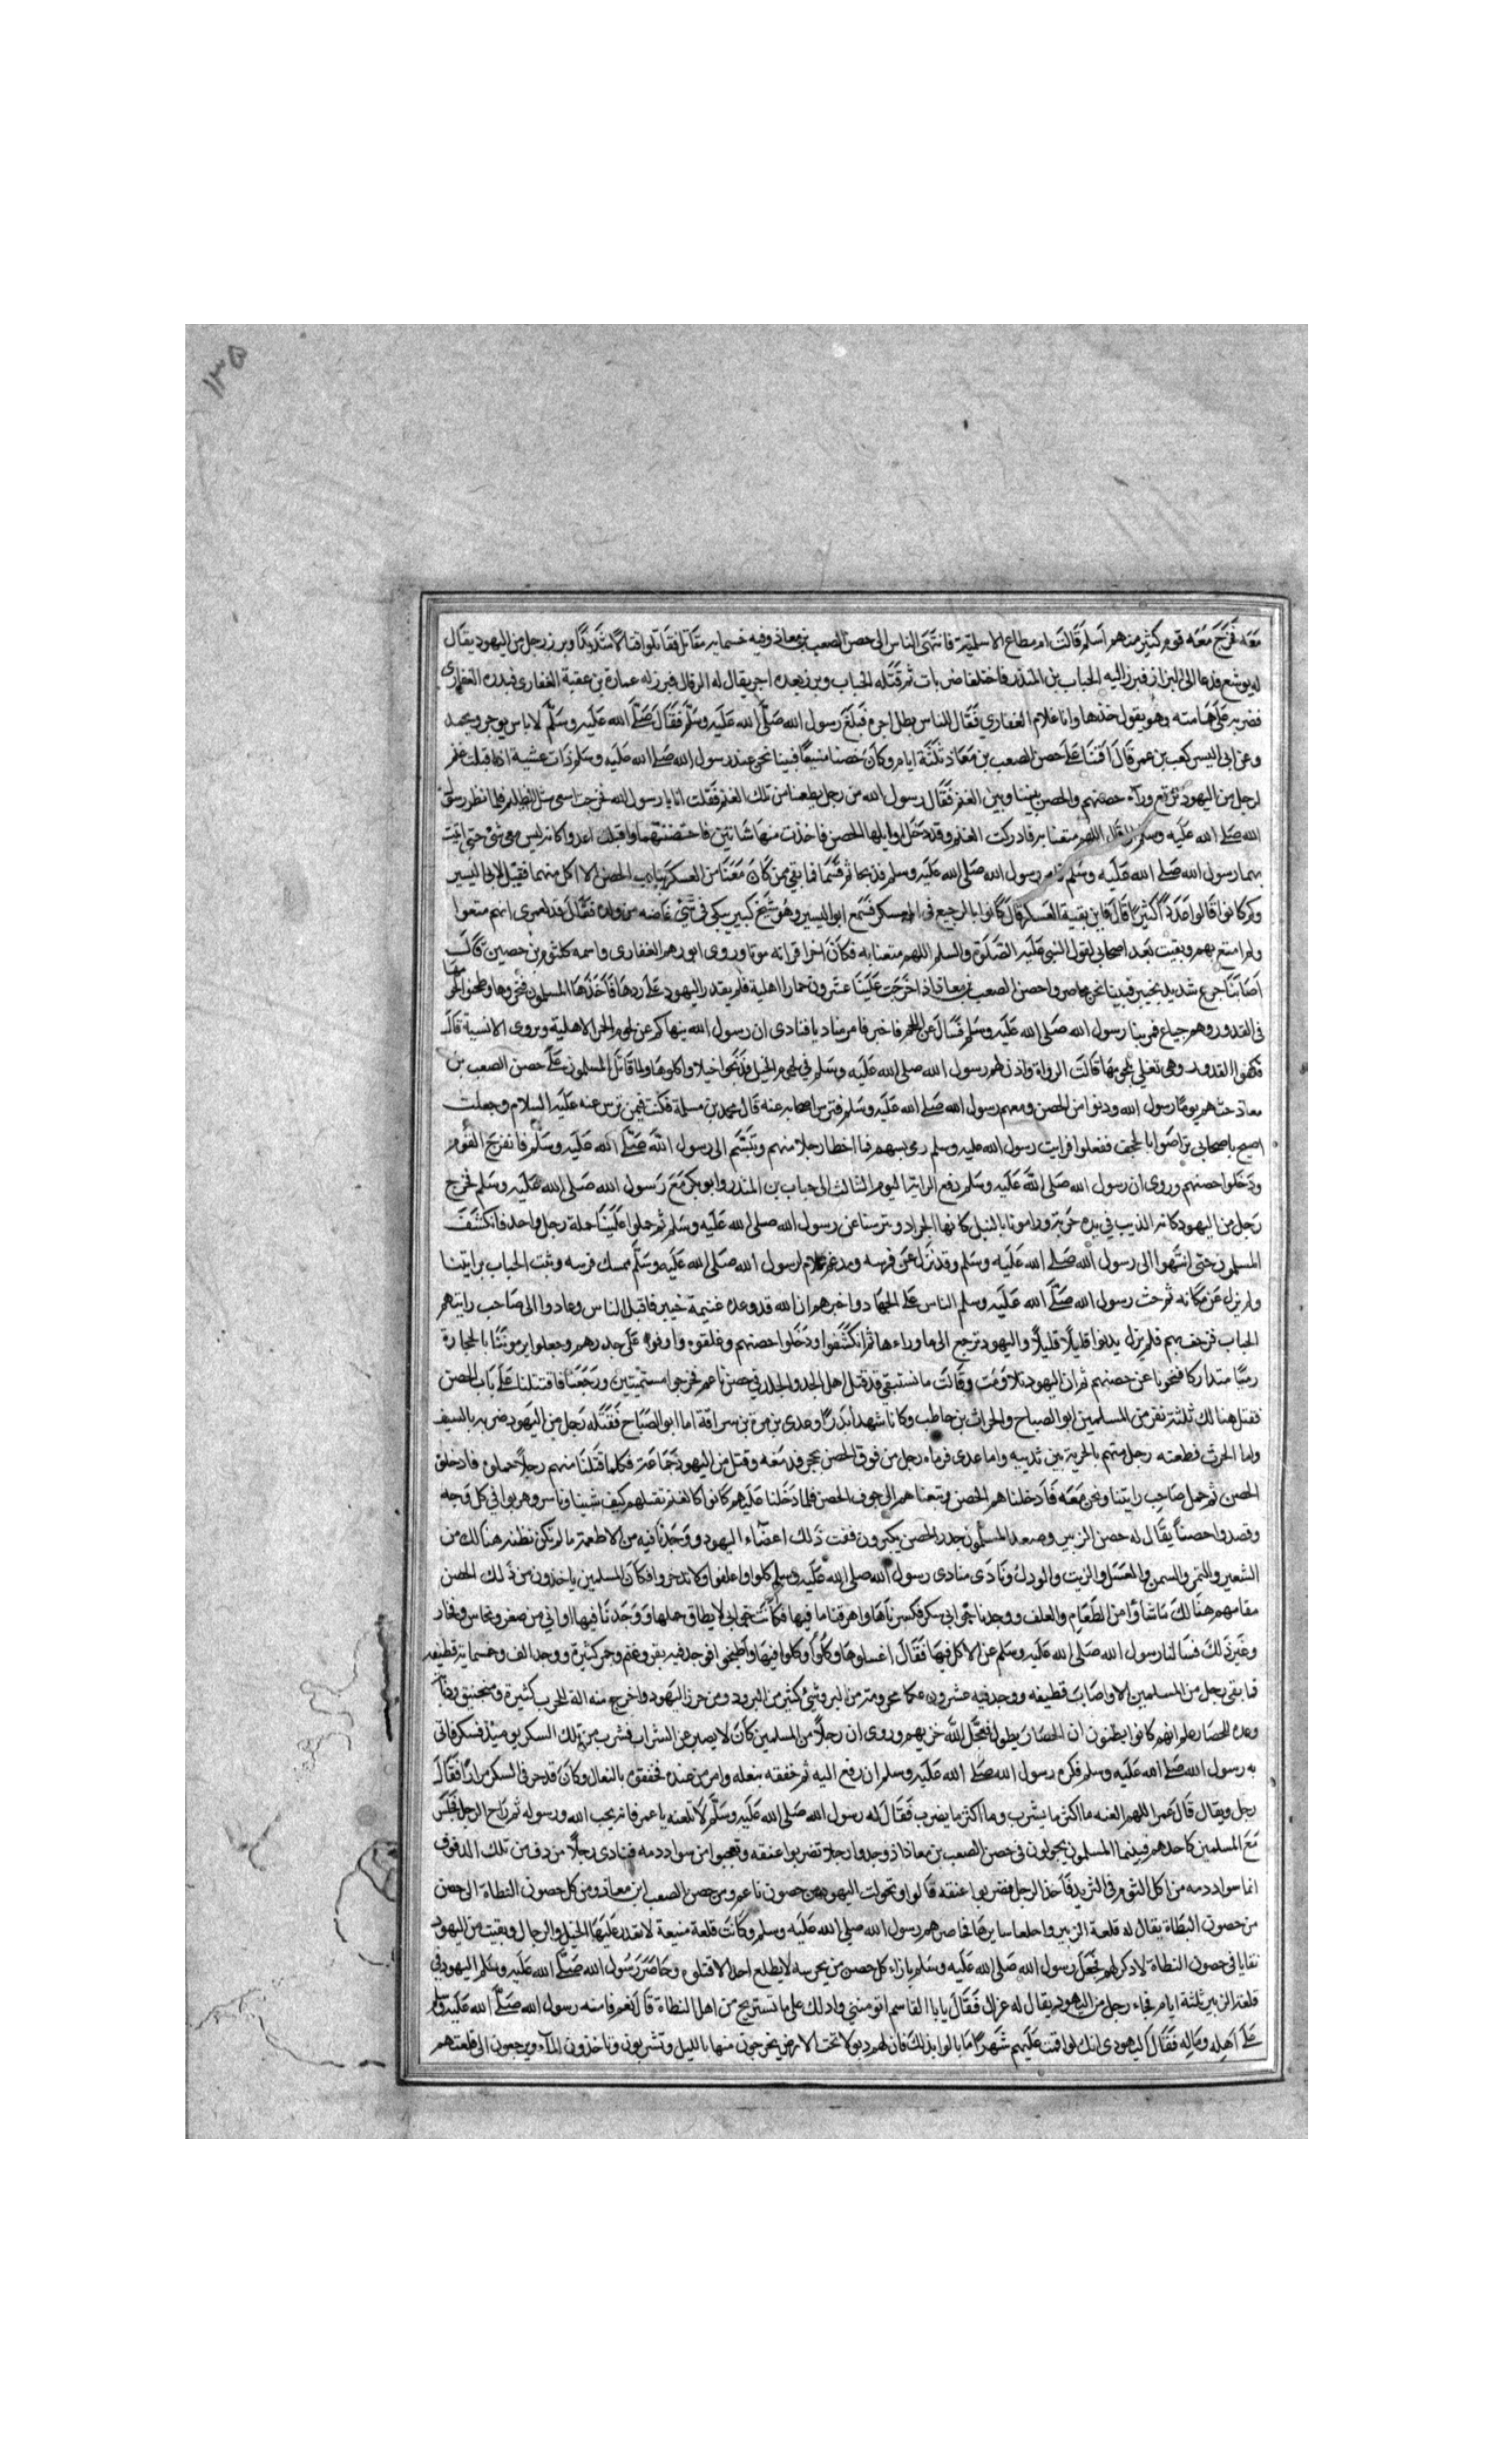 ١٣٥
معه فخرج معه قوم كثير منهم اسلم قالت ام مطاع الاسلمية فانتهى الناس الى حصن الصعب بن معاذ وفيه خمسماية مقاتل فقاتلوا قتالا شديدا وبرز رجل من اليهود يقال
له يوشع فدعا الى البراز فبرز اليه الحباب بن المنذر فاختلفا ضربات ثم قتله الحباب وبرز بعده اخر يقال له الزقال فبرز له عمارة بن عقبة الغفارى فبدره الغفارى
فضربه على هامته وهو يقول خذها وانا غلام الغفاري فقال الناس بطل اجره فبلغ رسول الله صلى الله عليه وسلم فقال صلى الله عليه وسلم لا باس يوجر ويحمد
وعن ابى اليسر كعب بن عمر قال اقمنا على حصن الصعب بن معاذ ثلثة ايام وكان حصنا منيعا فبينا نحن عند رسول الله صلى الله عليه وسلم ذات عشية اذ اقبلت غنم
لرجل من اليهود ترتع وراء حصنهم والحصن بيننا وبين الغنم فقال رسول الله من رجل يطعمنا من تلك الغنم فقلت انا يا رسول الله فخرجت اسعى مثل الظليم فلما نظر رسول
الله صلى الله عليه وسلم قال اللهم متعنا به فادركت الغنم وقد دخل اوايلها الحصن فاخذت منها شاتين فاحتضنتهما واقبلت اعدوا كانه ليس معى شئ حتى اتيت
بهما رسول الله صلى الله عليه وسلم فامر رسول الله صلى الله عليه وسلم فذبحا ثم قسما فما بقي ممن كان معنا من العسكر بباب الحصن الا اكل منهما فقيل لابى اليسر
وكم كانوا قالوا عددا كثيرا قال فاين بقية العسكر قال كانوا بالرجيع فى المعسكر فسمع ابو اليسر وهو شيخ كبير يبكى فى شئ غاضه من ولده فقال قد لعمرى انهم متعوا
ولم امتع بهم وبقيت بعد اصحابي لقول النبى عليه الصلوة والسلم اللهم متعنا به فكان اخر اقرانه موتا وروى ابو رهم الغفارى واسمه كلثوم بن حصين قال
اصابنا جوع شديد بخيبر فبينا نحن محاصروا حصن الصعب بن معاذ اذ اخرجت علينا عشرون حمارا اهلية فلم يقدر اليهود على ردها فاخذها المسلمون فنحروها وطبخوا لحومها
فى القدور وهم جياع فمر بها رسول الله صلى الله عليه وسلم فسأل عن اللحم فاخبر فامر مناديا فنادى ان رسول الله ينهاكم عن لحوم الحمر الاهلية ويروى الانسية قال
فكفوا القدور وهى تغلى بلحومها قالت الرواة واذن لهم رسول الله صلى الله عليه وسلم فى لحوم الخيل فذبحوا خيلا واكلوها ولما قاتل المسلمون على حصن الصعب بن
معاذ حثهم يوما رسول الله ودنوا من الحصن ومعهم رسول الله صلى الله عليه وسلم فترس اصحابه عنه قال محمد بن مسلمة فكنت فيمن ترس عنه عليه السلام وجعلت
اصيح باصحابي تراضوا بالحجف ففعلوا فرايت رسول الله صلى الله عليه وسلم رمى بسهم فما اخطا رجلا منهم وتبسم الى رسول الله صلى الله عليه وسلم فانفرج القوم
ودخلوا حصنهم وروى ان رسول الله صلى الله عليه وسلم دفع الراية اليوم الثالث الى حباب بن المنذر وابو بكر مع رسول الله صلى الله عليه وسلم فخرج
رجل من اليهود كانه الذيب في يده حربة ورامونا بالنبل كانها الجراد وترسنا عن رسول الله صلى الله عليه وسلم ثم حملوا علينا حملة رجل واحد فانكشف
المسلمون حتى انتهوا الى رسول الله صلى الله عليه وسلم وقد نزل عن فرسه ومدعم غلام لرسول الله صلى الله عليه وسلم يمسك فرسه وثبت الحباب برايتنا
ولم يزل عن مكانه ثم حث رسول الله صلى الله عليه وسلم الناس على الجهاد واخبرهم ان الله قد وعده غنيمة خيبر فاقبل الناس وعادوا الى صاحب رايتهم
الحباب فزحف بهم فلم يزل يدنوا قليلا قليلا واليهود ترجع الى ما وراءها ثم انكشفوا ودخلوا حصنهم وغلقوه واوفوا على جدرهم وجعلوا يرموننا بالحجارة
رميا متداركا فنحونا عن حصنهم ثم ان اليهود تلاومت وقالت ما نستبقي قد قتل اهل الجد والجلد في حصن ناعم فخرجوا مستميتين ورجعنا فاقتتلنا على باب الحصن
فقتل هنالك ثلثة نفر من المسلمين ابو الصياح والحراث بن حاطب وكانا شهدا بدرا وعدى بن مرة بن سراقة اما ابو الصياح فقتله رجل من اليهود ضربه بالسيف
واما الحرث فطعنه رجل منهم بالحربة بين ثدييه واما عدى فرماه رجل من فوق الحصن بحجر فدمغه وقتل من اليهود جماعة فكلما قتلنا منهم رجلا حملوه فادخلوه
الحصن ثم حمل صاحب رايتنا ونحن معه فادخلناهم الحصن وتبعناهم الى جوف الحصن فلما دخلنا عليهم كانوا كالغنم نقتلهم كيف شينا وناسر وهربوا في كل وجه
وقصدوا حصنا يقال له حصن الزبير وصعد المسلمون جدر الحصن يكبرون ففت ذلك اعضاء اليهود ووجدنا فيه من الاطعمة ما لم تكن نظنه هنالك من
الشعير والتمر والسمن والعسل والزيت والودك ونادى منادى رسول الله صلى الله عليه وسلم كلوا واعلفوا ولا تدخروا فكان المسلمين ياخذون من ذلك الحصن
مقامهم هنالك ما شاوا من الطعام والعلف ووجدنا خوابى سكر فكسرناها واهرقنا ما فيها فكانت خوابى لا يطاق حملها ووجدنا فيها اواني من صفر ونحاس وفخار
وغير ذلك فسالنا رسول الله صلى الله عليه وسلم عن الاكل فيها فقال اغسلوها وكلوا فيها واطبخوا فوجد فيه بقر وغنم وحمر كثيرة ووجد الف وخمسماية قطيفه
فما بقى رجل من المسلمين الا واصاب قطيفه ووجد فيه عشرون عكما محزومة من البز وشئ كثير من البرود ومن خرز اليهود واخرج منه الة الحرب كثيرة ومنجنيق ودبابات
وعده للحصار علم انهم كانوا يظنون ان الحصار يطول فعجل الله خزيهم وروى ان رجلا من المسلمين كان لا يصبر عن الشراب فشرب من تلك السكر يوميذ فسكر فاتى
به رسول الله صلى الله عليه وسلم فكره رسول الله صلى الله عليه وسلم ان رفع اليه ثم خفقه بنعله وامر من عنده فخفقوه بالنعال وكان قد حد في السكر مرارا فقال
رجل ويقال قال عمر اللهم العنه ما اكثر ما يشرب وما اكثر ما يضرب فقال له رسول الله صلى الله عليه وسلم لا تلعنه يا عمر فانه يحب الله ورسوله ثم راح الرجل فجلس
مع المسلمين كاحدهم فبينما المسلمون يجولون فى حصن الصعب بن معاذ اذ وجدوا رجلا فضربوا عنقه وتعجبوا من سواد دمه فنادى رجلا من دف من تلك الدفوف
انما سواد دمه من اكل الثوم فى الثريد فاخذ الرجل فضربوا عنقه قالوا وتحولت اليهود من حصون ناعم ومن حصن الصعب ابن معاذ ومن كل حصون النطاة الى حصن
من حصون النطاة يقال له قلعة الزبير واخلعا سايرها فحاصرهم رسول الله صلى الله عليه وسلم وكانت قلعة منيعة لا تقدر عليها الخيل والرجال وبقيت من اليهود
بقايا فى حصون النطاة لا ذكر لهم فجعل رسول الله صلى الله عليه وسلم بازاء كل حصن من يحرسه لا يطلع احد الا قتلوه وحاصر رسول الله صلى الله عليه وسلم اليهود فى
قلعة الزبير ثلثة ايام فجاء رجل من اليهود يقال له عزال فقال يا با القاسم اتومنني وادلك على ما تستريح من اهل النطاة قال نعم فامنه رسول الله صلى الله عليه وسلم
على اهله وماله فقال اليهودى انك لو اقمت عليهم شهرا ما بالوا بذلك فان لهم دبولا تحت الارض يخرجون منها بالليل وتشربون وتاخذون الماء ويرجعون الى قلعتهم